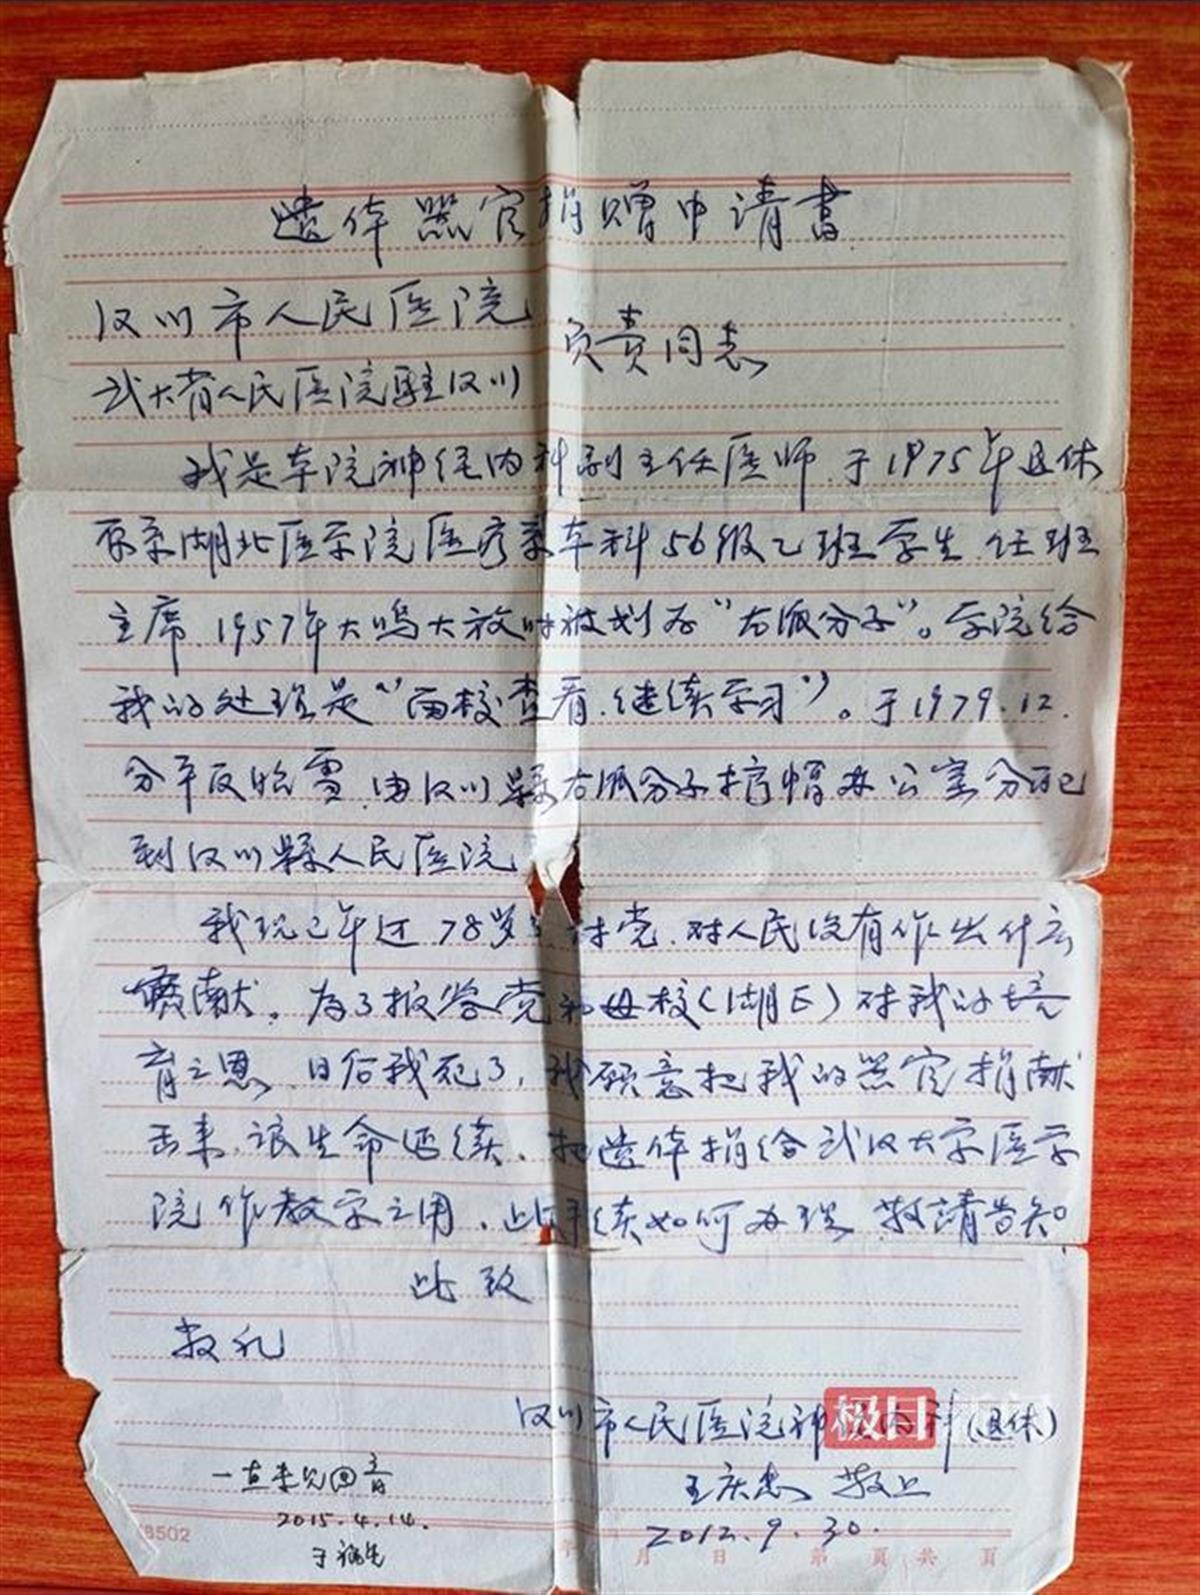 遗体器官捐赠申请书
汉川市人民医院
负责同志
武大省人民医院驻汉川
我是本院神经内科副主任医师、于1975年退休
原系湖北医学院医疗系本科56级乙班学生、任班
主席、1957年大鸣大放时被划为“右派分子”。学院给
我的处理是“留校查看、继续学习”。于1979.12.
分平反昭雪、由汉川县右派分子摘帽办公室分配
到汉川县人民医院
我现已年近78岁了对党、对人民没有作出什么
贡献。为了报答党和母校(湖医)对我的培
育之恩、日后我死了,我愿意把我的器官捐献
出来、让生命延续、把遗体捐给武汉大学医学
院作教学之用、此手续如何办理、敬请告知
此致
敬礼
汉川市人民医院神经内科(退休)
极目
王庆忠 敬上
一直未见回音
2012.9.30.
2015.4.14.
8502
年 月 日 第 页 共 页